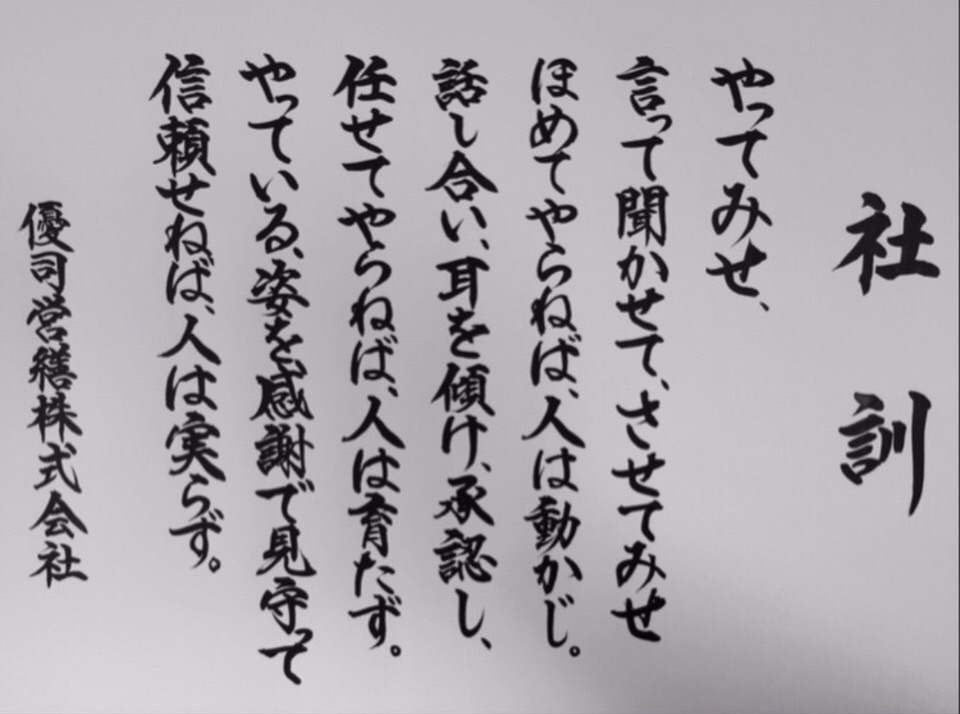 社訓
やってみせ、
言って聞かせて、させてみせ
ほめてやらねば、人は動かじ。
話し合い、耳を傾け、承認し、
任せてやらねば、人は育たず。
やっている、姿を感謝で見守って
信頼せねば、人は実らず。
優司営繕株式会社